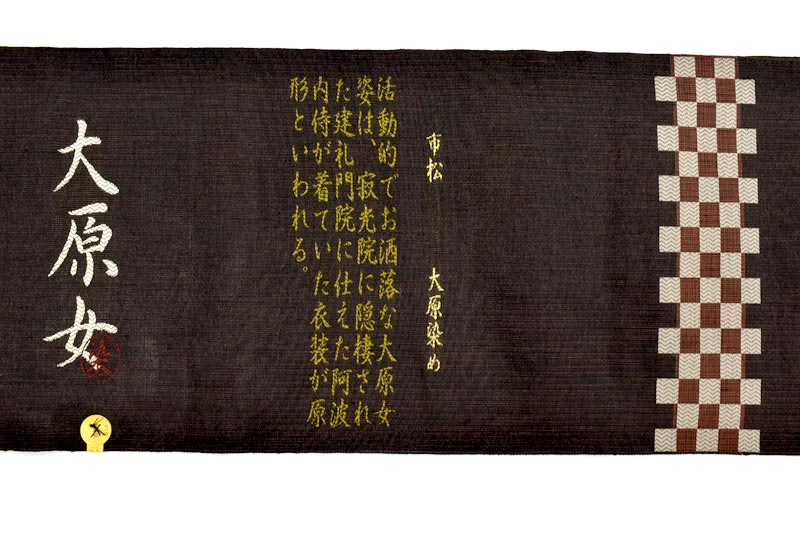 市松　大原染め
活動的でお洒落な大原女
姿は、寂光院に隠棲され
た建礼門院に仕えた阿波
内侍が着ていた衣装が原
形といわれる。
大原女